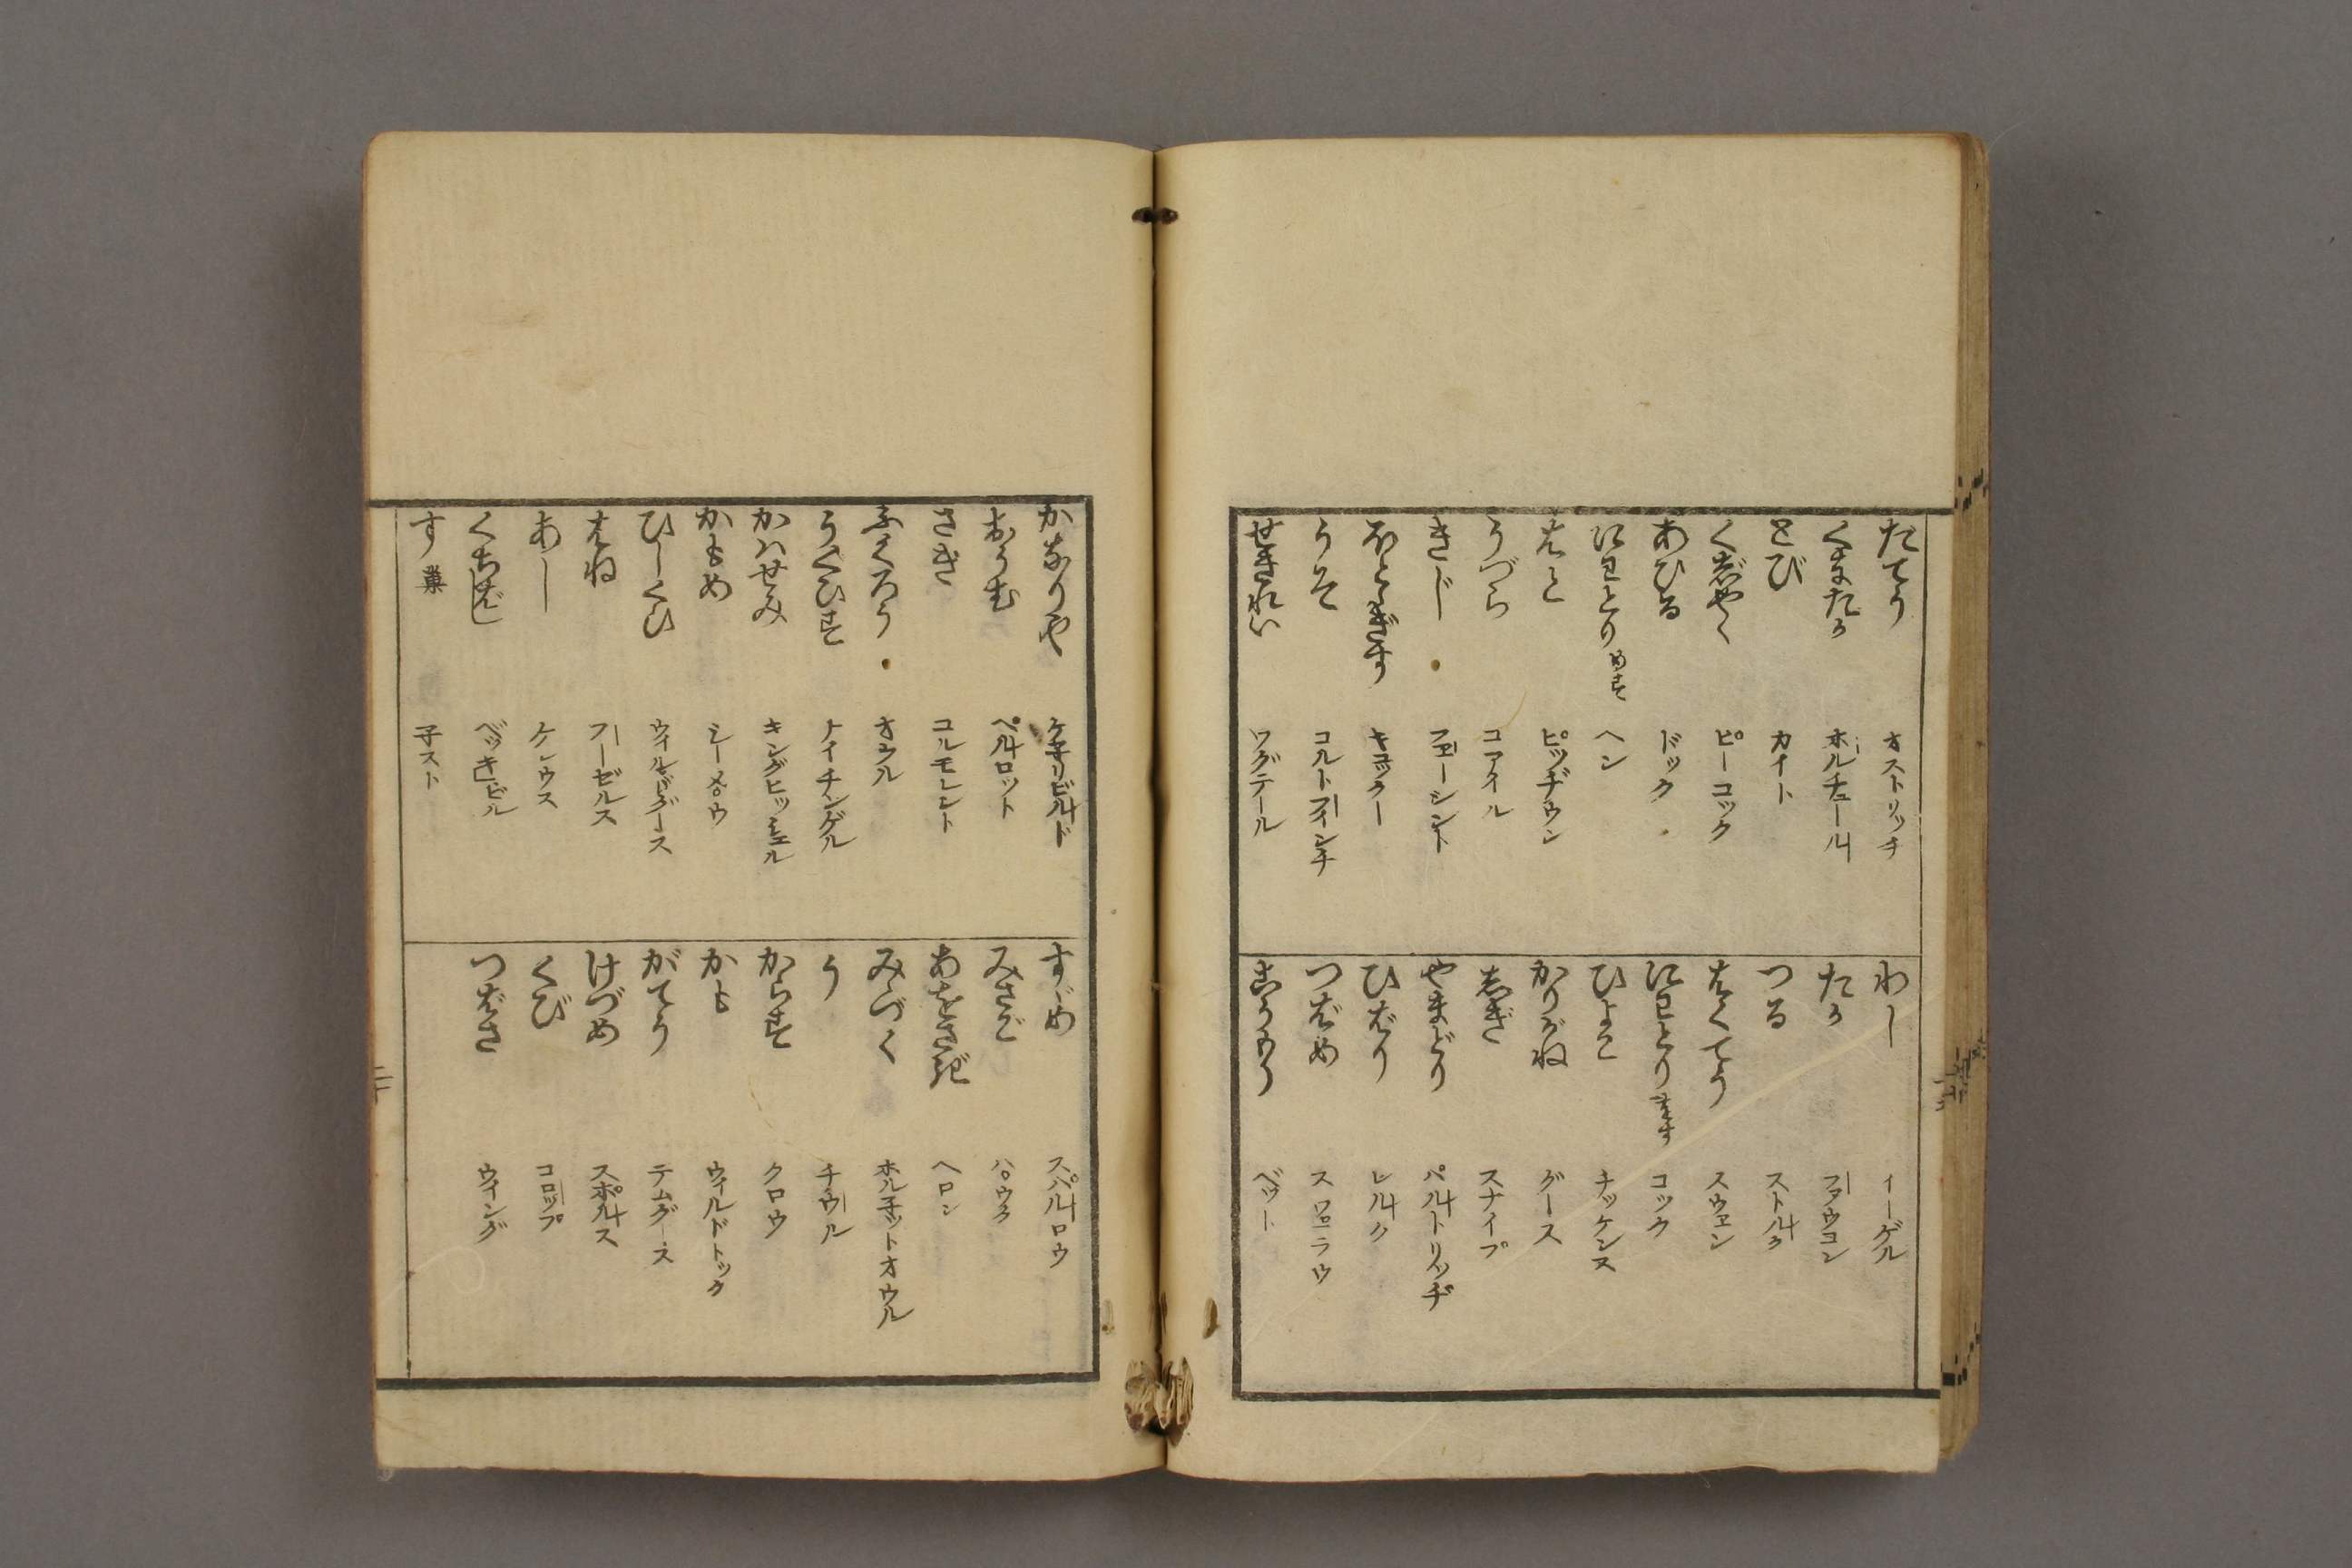 だてう オストリッチ
くまたか ホルチュール
とび カイト
くじやく ピーコック
あひる ドック
にわとり めす ヘン
はと ピッヂウン
うづら コアイル
きじ フェーシント
ほとゝぎす キュックー
うそ コルトフインチ
せきれい ワグテール
わし イーゲル
たか ファウコン
つる ストルク
はくてう スウェン
にわとり をす コック
ひよこ チッケンス
かりがね グース
しぎ スナイプ
やまどり パルトリッヂ
ひばり レルク
つばめ スワローラウ
こうもり ベット
かなりや ケネリビルド
おうむ ペルロット
さぎ コルモレント
ふくろう オウル
うぐひす ナイチンゲル
かはせみ キングヒッシェル
かもめ シーメウ
ひしくひ ウィルドグース
はね フーゼルス
あし ケレウス
くちばし ベッキ ビル
す 巣 子スト
すゞめ スパルロウ
みさご ハウク
あをさぎ ヘロン
みゝづく ホル子ットオウル
う チウール
からす クロウ
かも ウィルドドック
がてう テムグース
けづめ スポルス
くび コロップ
つばさ ウイング